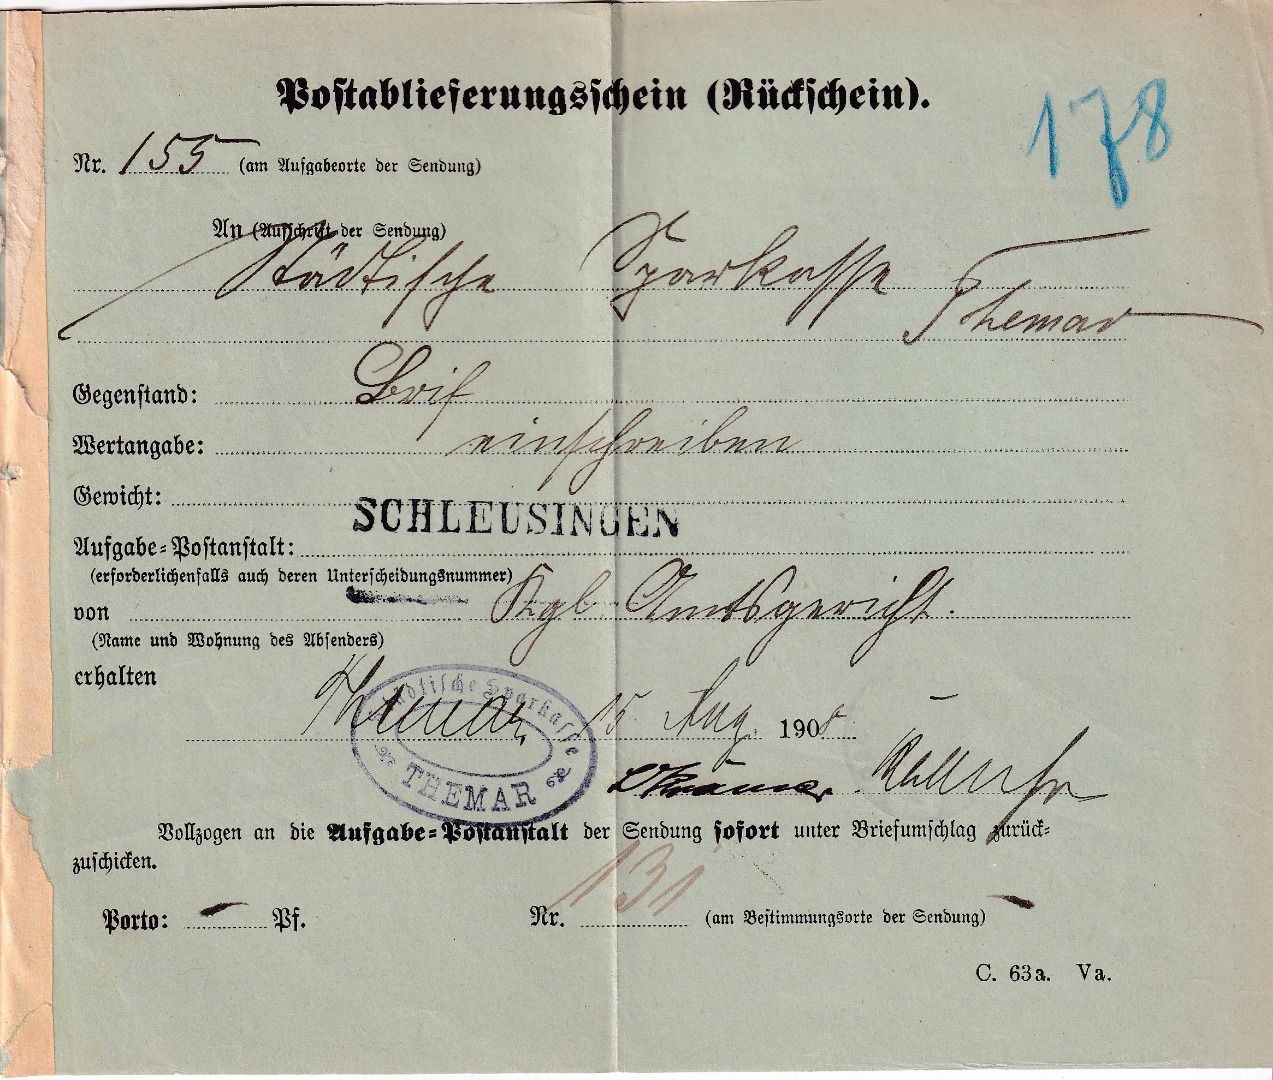 Postablieferungsschein (Rückschein).
178
Nr. 155 (am Aufgabeorte der Sendung)
An (Aufschrift der Sendung)
Städtische Sparkasse
Themar
Gegenstand: Brif
Wertangabe: einschreiben
Gewicht:
SCHLEUSINGEN
Aufgabe-Postanstalt:
(erforderlichenfalls auch deren Unterscheidungsnummer)
von Kgl. Amtsgericht.
(Name und Wohnung des Absenders)
erhalten
Städtische Sparkasse
THEMAR
Themar, 15 Aug. 190
Vollzogen an die Aufgabe-Postanstalt der Sendung sofort unter Briefumschlag zurück-
zuschicken.
Porto: Pf. Nr. 131 (am Bestimmungsorte der Sendung)
C. 63a. Va.